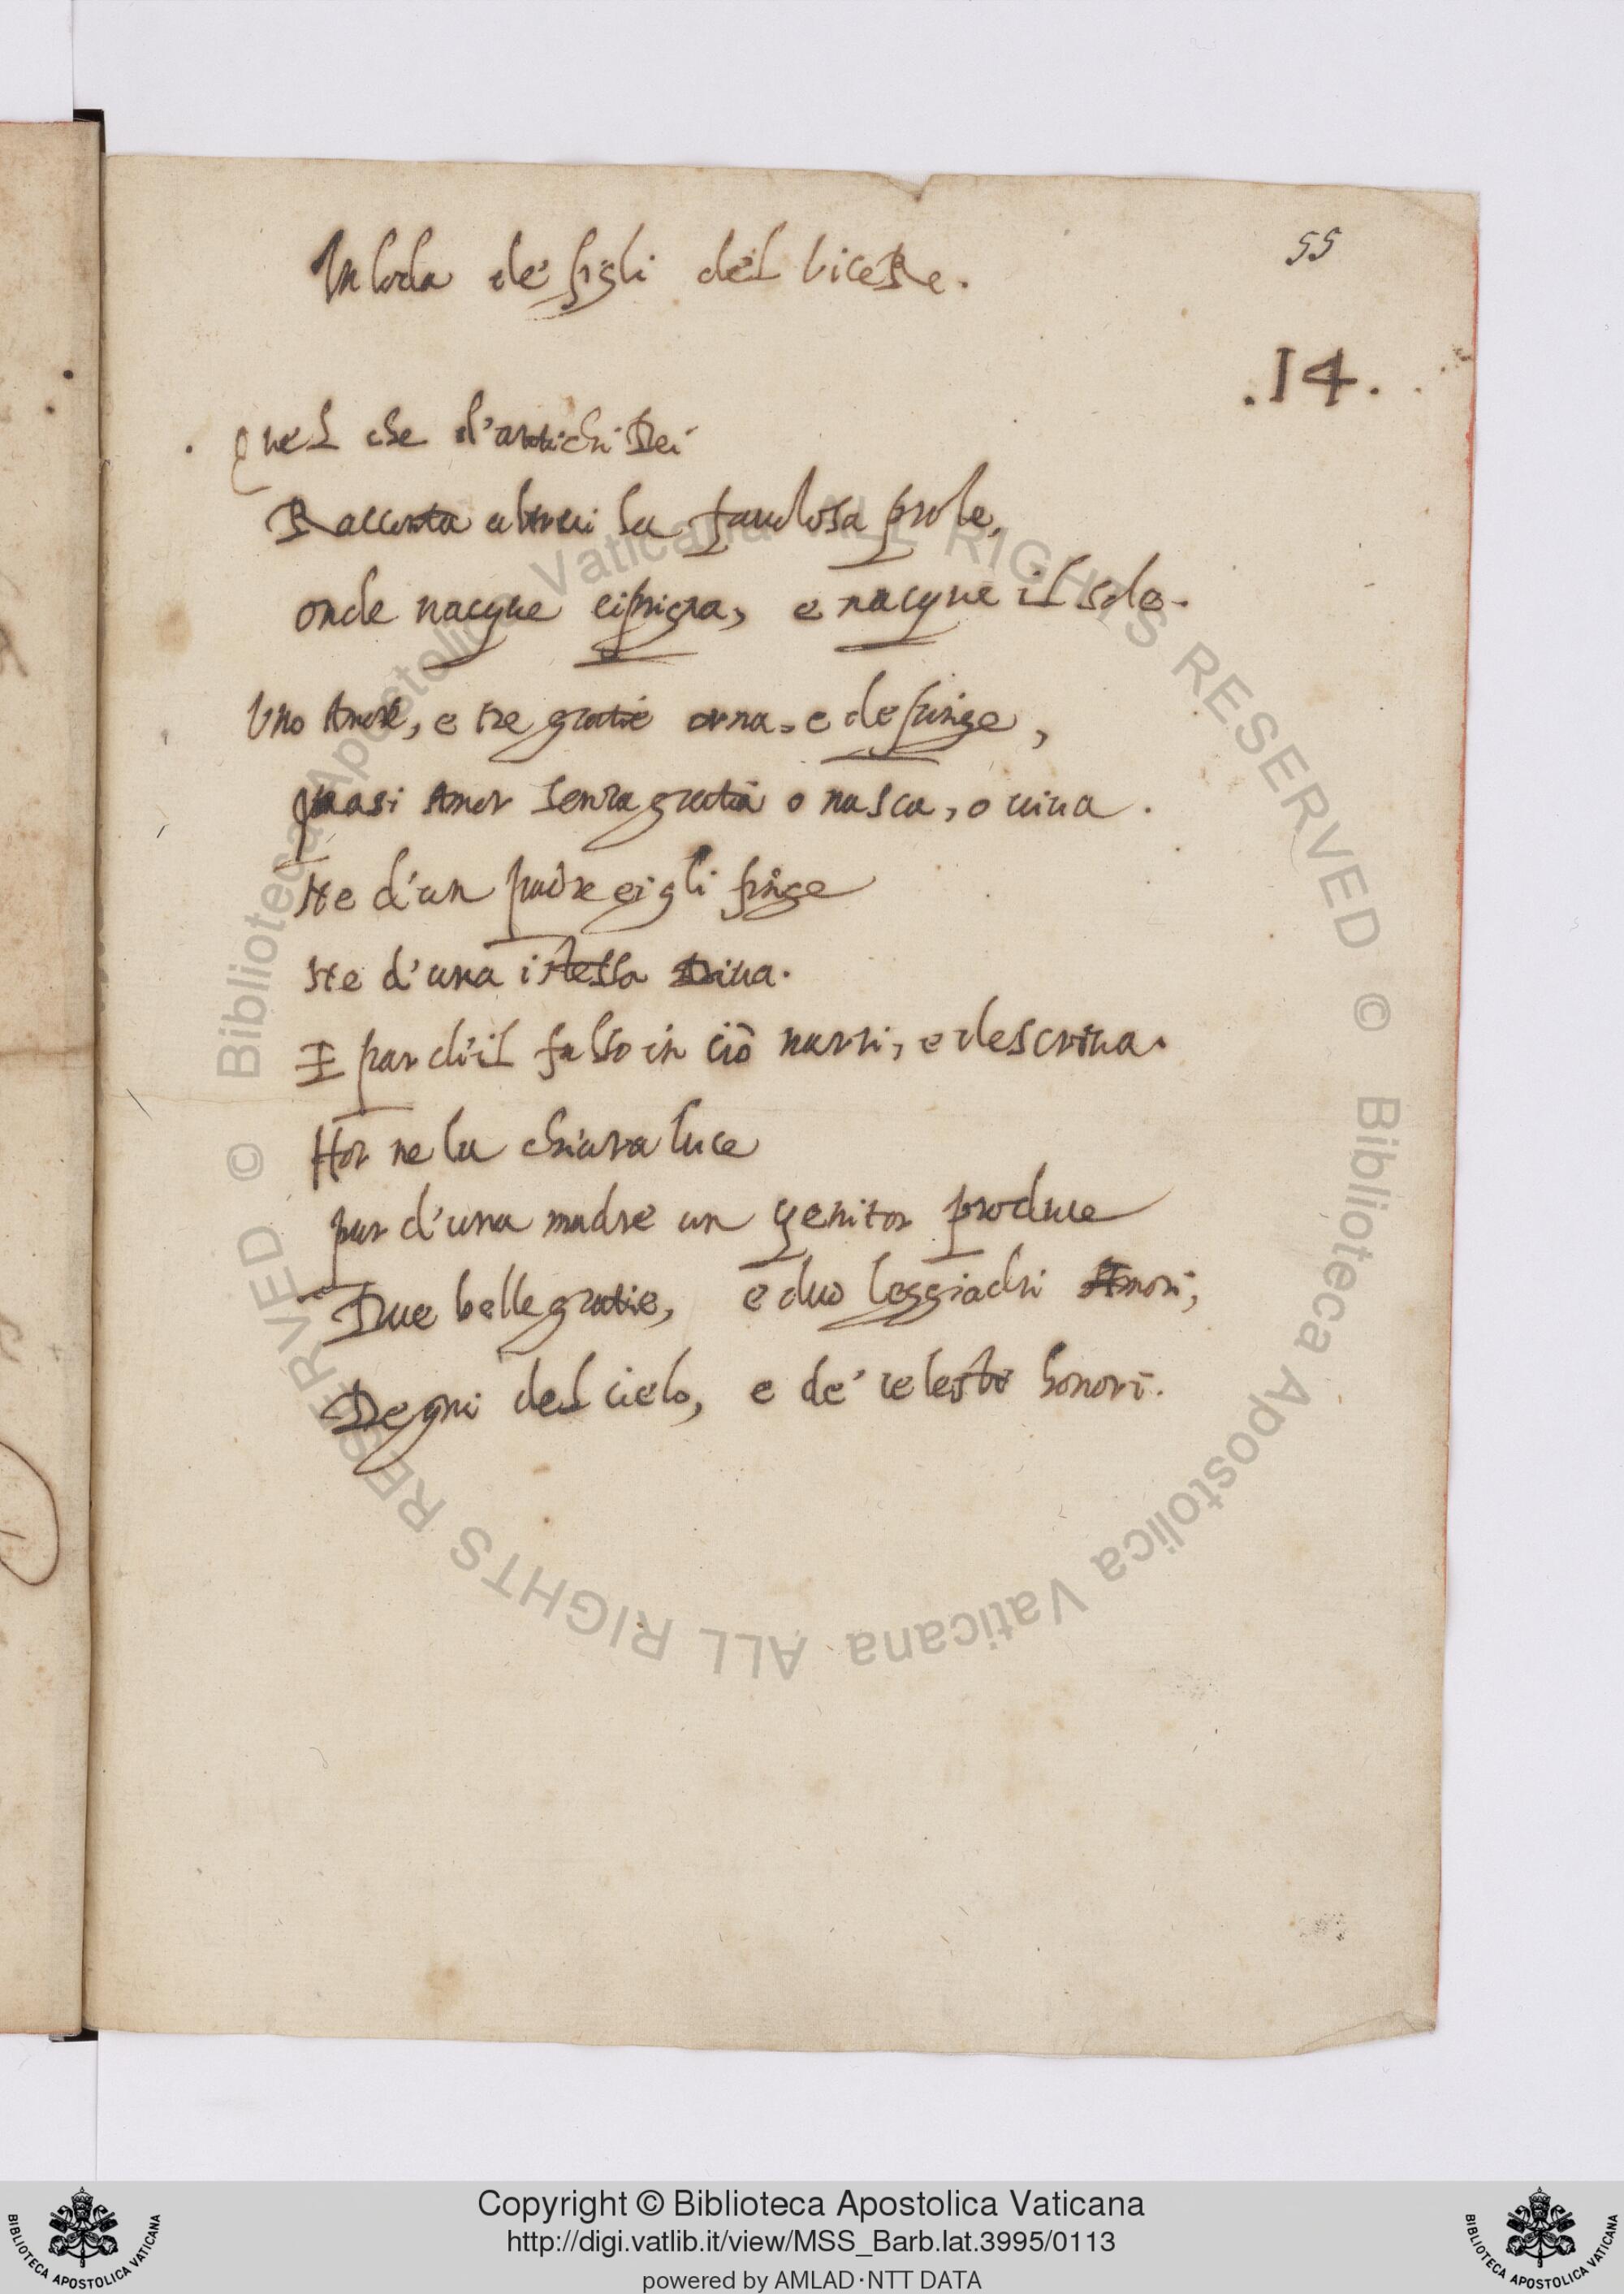 In loda de' figli del Vicere.
55
.14.
Quel che d'antichi Dei
Racconta altrui la fauolosa prole,
onde nacque ciprigna, e nacque il sole.
Uno Amore, e tre gratie orna, e depinge,
quasi Amor senza gratia o nasca, o uiua.
Ne d'un padre ei gli finge
Ne d'una istessa Diua.
E par ch'il falso in ciò narri, e descriua.
Hor ne la chiara luce
pur d'una madre un genitor produce
Due belle gratie, e duo leggiadri Amori,
Degni del cielo, e de' celesti honori.
© Biblioteca Apostolica Vaticana ALL RIGHTS RESERVED © Biblioteca Apostolica Vaticana ALL RIGHTS RESERVED
Copyright © Biblioteca Apostolica Vaticana
http://digi.vatlib.it/view/MSS_Barb.lat.3995/0113
powered by AMLAD·NTT DATA
BIBLIOTECA APOSTOLICA VATICANA
BIBLIOTECA APOSTOLICA VATICANA